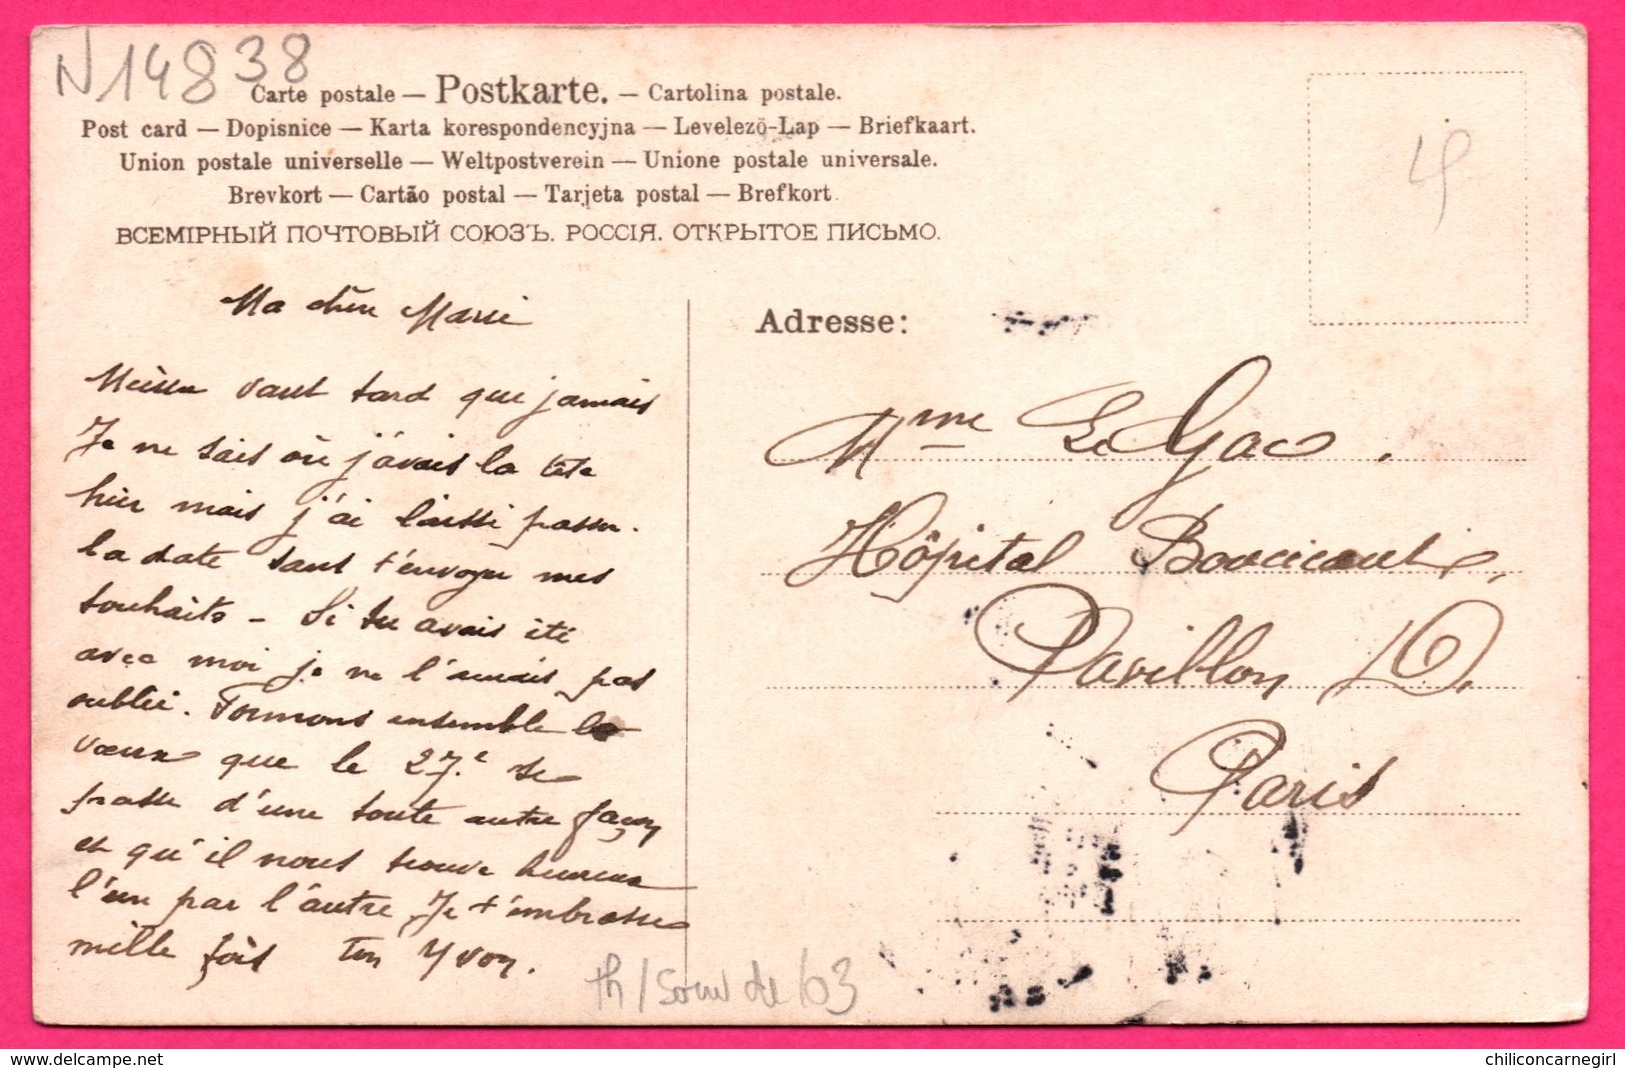 N14838
Carte postale — Postkarte. — Cartolina postale.
Post card — Dopisnice — Karta korespondencyjna — Levelező-Lap — Briefkaart.
Union postale universelle — Weltpostverein — Unione postale universale.
Brevkort — Cartão postal — Tarjeta postal — Brefkort
ВСЕМІРНЫЙ ПОЧТОВЫЙ СОЮЗЪ. РОССІЯ. ОТКРЫТОЕ ПИСЬМО.
Ma chère Marie
Mieux vaut tard que jamais
Je ne sais où j'avais la tête
hier mais j'ai laissé passer
la date sans t'envoyer mes
souhaits - Si tu avais été
avec moi je ne l'aurais pas
oublié. Formons ensemble le
vœux que le 27.e se
passe d'une toute autre façon
et qu'il nous trouve heureux
l'un par l'autre Je t'embrasse
mille fois ton Yvon.
Adresse:
Mme Le Gac.
Hôpital Boucicaut,
Pavillon D.
Paris
th/ de 63
chiliconcarnegirl
www.delcampe.net